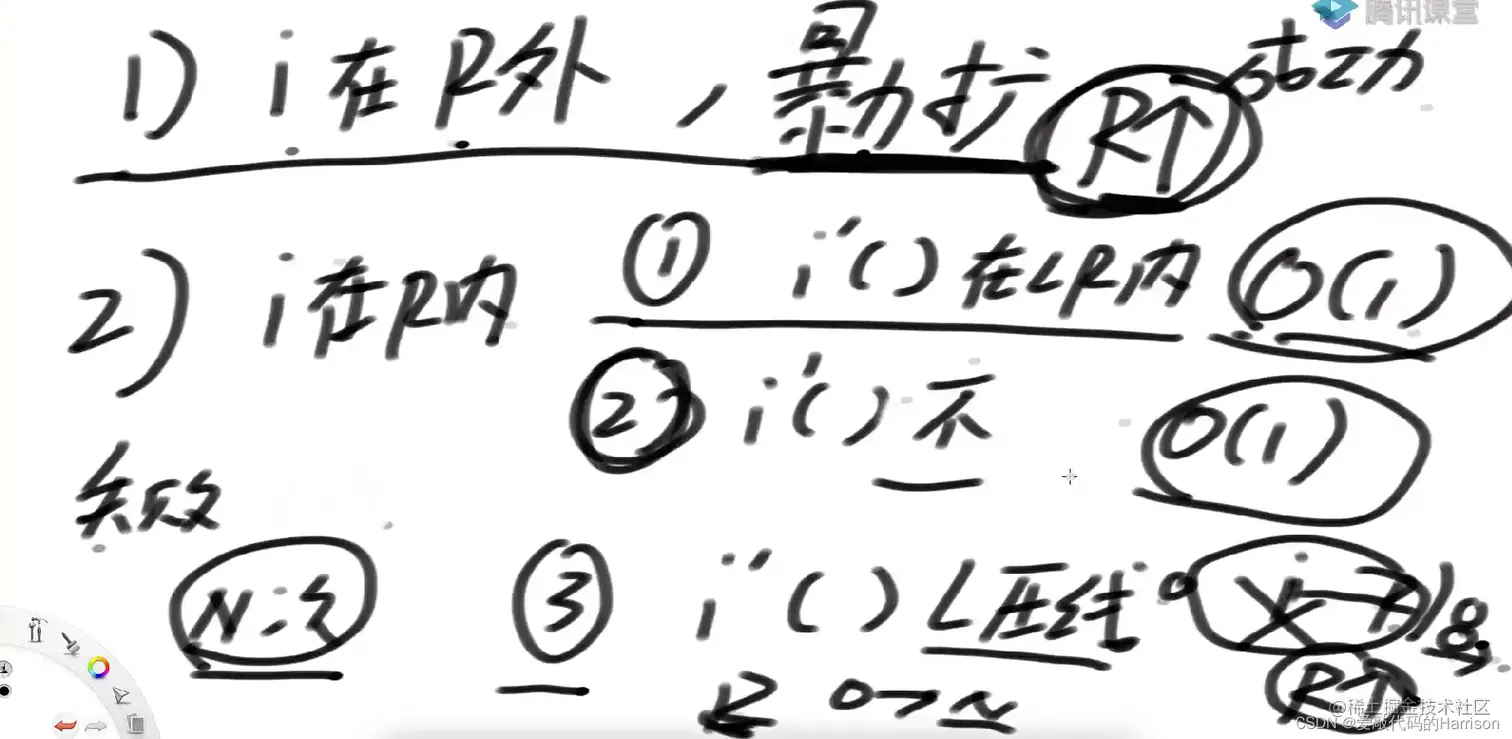 腾讯课堂
1) i在R外，暴力扩 R↑ 成功
2) i在R内 ① i'()在LR内 O(1)
② i'()不 O(1)
失败
N次 ③ i'()L压线
R↑
0→N
@稀土掘金技术社区
CSDN @爱敲代码的Harrison